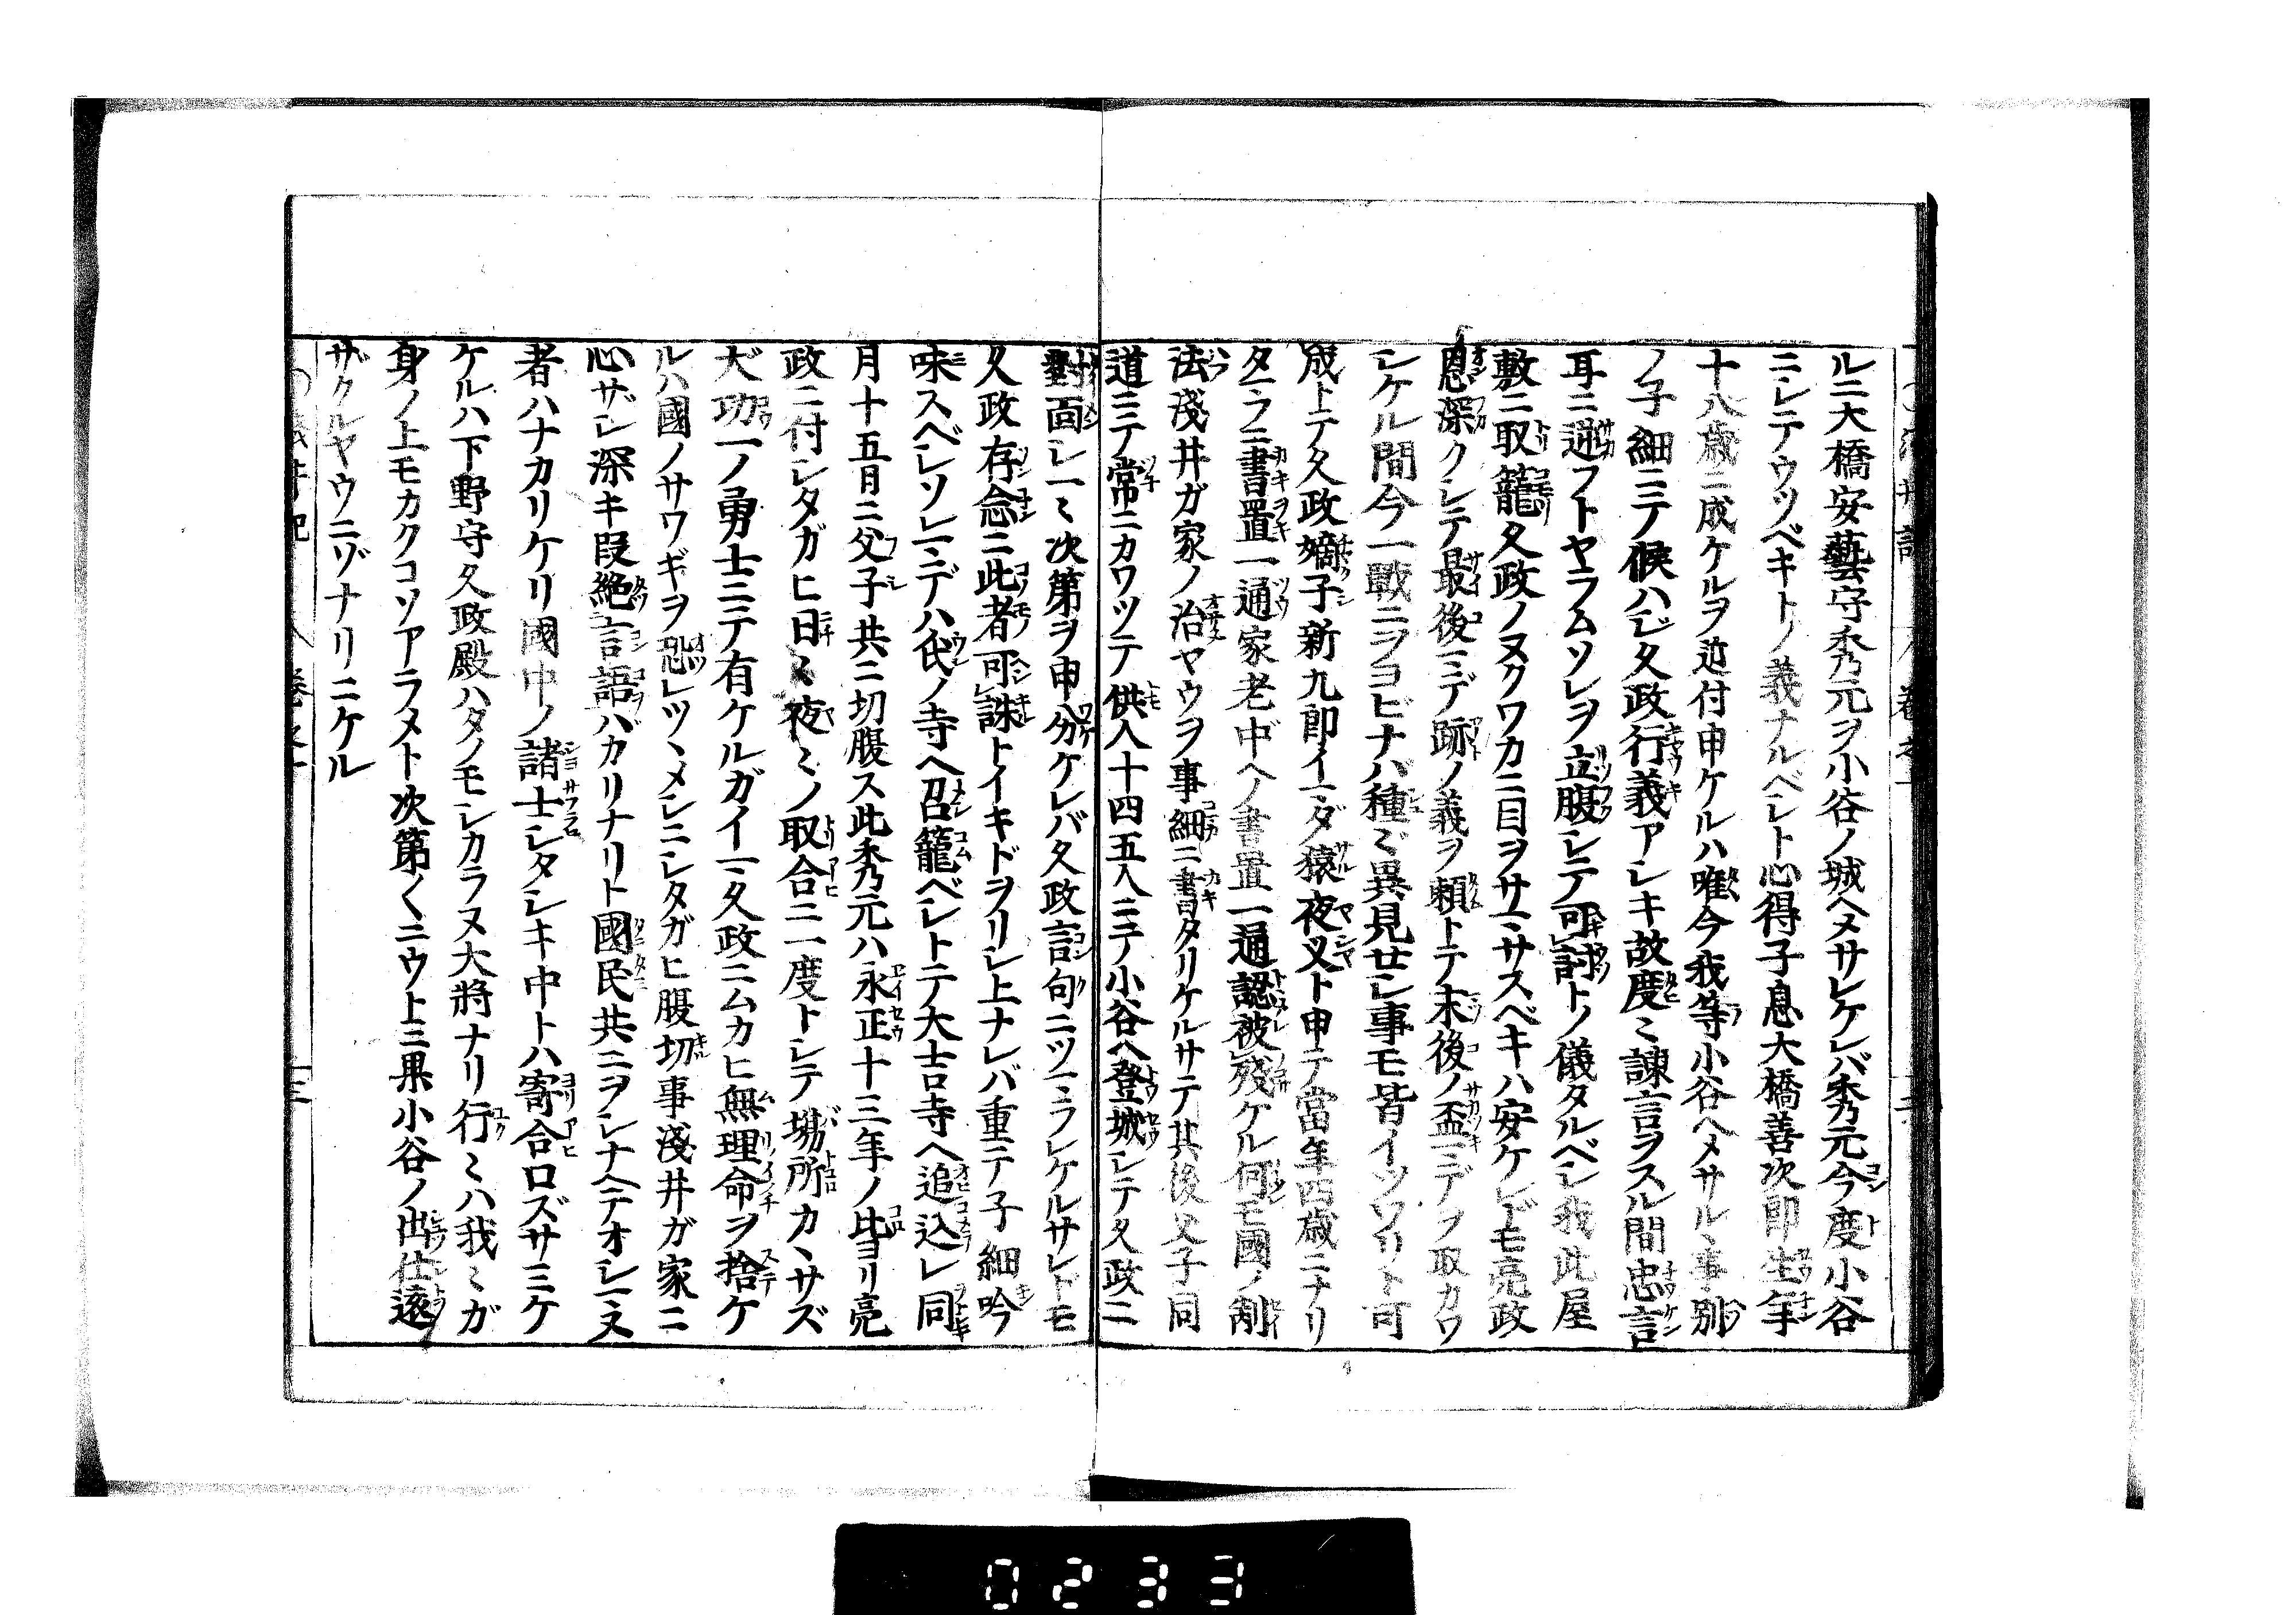 ルニ大橋安藝守秀元ヲ小谷ノ城ヘメサレケレバ秀元今度小谷
ニシテウツベキトノ義ナルベシト心得子息大橋善次郎生年
十八歳ニ成ケルヲ近付申ケルハ唯今我等小谷ヘメサルヽ事別
ノ子細ニテ候ハジ久政行義アシキ故度〻諫言ヲスル間忠言
耳ニ逆フトヤラムソレヲ立腹シテ可討トノ儀タルベシ我此屋
敷ニ取籠久政ノヌクワカニ目ヲサマサスベキハ安ケレドモ亮政
恩深クシテ最後マデ跡ノ義ヲ頼トテ末後ノ盃マデヲ取カワ
シケル間今一戰ニヲヨビナバ種〻異見せシ事モ皆イツワリト可
成トテ久政嫡子新九郎イマダ猿夜叉ト申テ當年四歳ニナリ
タマフニ書置一通家老中ヘノ書置一通認被殘ケル何モ國ノ制
法淺井ガ家ノ治ヤウヲ事細ニ書タリケルサテ其後父子同
道ニテ常ニカワツテ供人十四五人ニテ小谷ヘ登城シテ久政ニ
對面シ一〻次第ヲ申分ケレバ久政言句ニツマラレケルサレトモ
久政存念ニ此者可誅トイキドヲリシ上ナレバ重テ子細吟
味スベシソレマデハ氏ノ寺ヘ召籠ベシトテ大吉寺ヘ追込レ同
月十五日ニ父子共ニ切腹ス此秀元ハ永正十三年ノ比ヨリ亮
政ニ付シタガヒ日〻夜〻ノ取合ニ一度トシテ塲所カヽサズ
大功一ノ勇士ニテ有ケルガイマ久政ニムカヒ無理命ヲ捨ケ
ルハ國ノサワギヲ恐レツヽメシニシタガヒ腹切事淺井ガ家ニ
心ザシ深キ段絶言語バカリナリト國民共ニヲシナヘテオシマヌ
者ハナカリケリ國中ノ諸士シタシキ中トハ寄合ロズサミケ
ケルハ下野守久政殿ハタノモシカラヌ大將ナリ行〻ハ我〻ガ
身ノ上モカクコソアラメト次第〱ニウト三果小谷ノ出仕逐
ザクルヤウニゾナリニケル